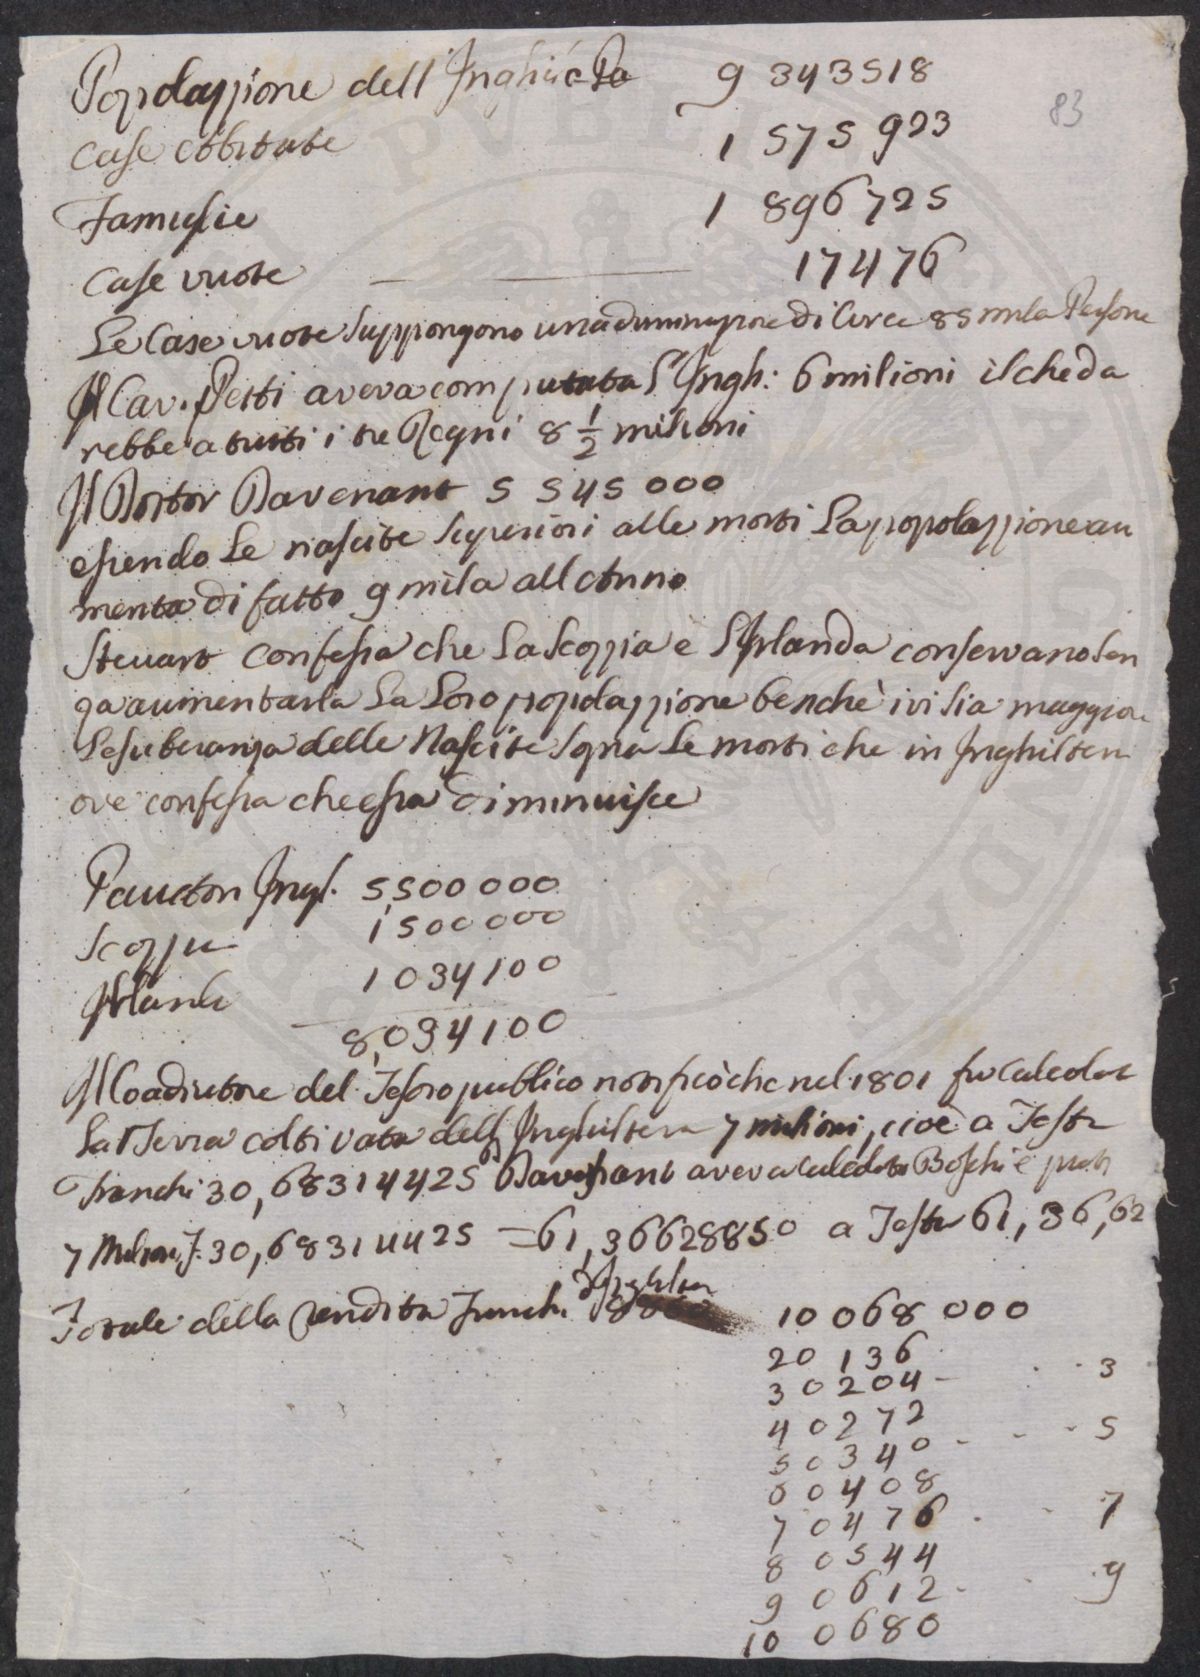 Popolazzione dell'Inghil.ra 9 343518
83
Case Abitate 1 575 923
Famiglie 1 896725
Case vuote 17476
Le Case vuote suppongono una diminuzione di circa 85 mila Persone
Il Cav. Petti aveva computata l'Ingh: 6 milioni il che da
rebbe a tutti i tre Regni 8 1/2 milioni
Il Dottor Davenant 5 545 000
essendo le nascite superiori alle morti La popolazzione au
menta di fatto 9 mila all'Anno
Stevart confessa che La Scozzia e l'Irlanda conservano sen
za aumentarla La Loro popolazzione benchè ivi sia maggiore
L'esuberanza delle Nascite sopra Le morti che in Inghilterra
ove confessa che essa diminuisce
Paucton Ingl. 5,500000
Scozzia 1500000
Irlanda 1034100
8,034100
Il Coadiutore del Tesoro pubblico notificò che nel 1801 fu calcolata
La Terra coltivata dell'Inghilterra 7 milioni, cioè a Testa
Franchi 30,68314425 Davenant aveva calcolato Boschi e prati
7 Milioni F. 30,68314425 = 61,36628850 a Testa 61,36,62
Totale della rendita Franchi d'Inghilterra 10 068 000
20 136
30204 - . . 3
40272
50340 - . - . 5
60408
70476 . . 7
80544
90612 - . . 9
100680